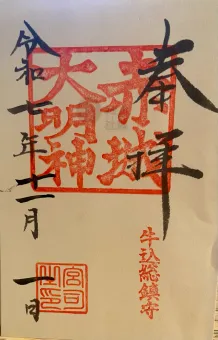 奉拝
赤城
大明神
牛込総鎮守
令和七年十一月一日
宮司
之印